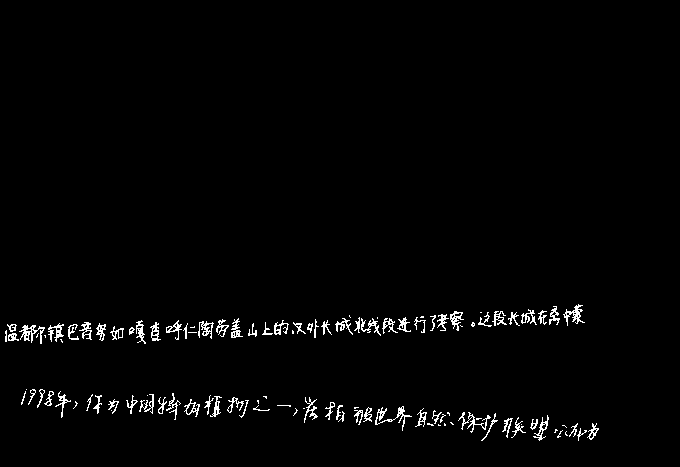 温都尔镇巴音努如嘎查呼仁陶劳盖山上的汉外长城北线段进行了考察。这段长城在离中蒙
1998年,作为中国特有植物之一,岩柏被世界自然保护联盟公布为